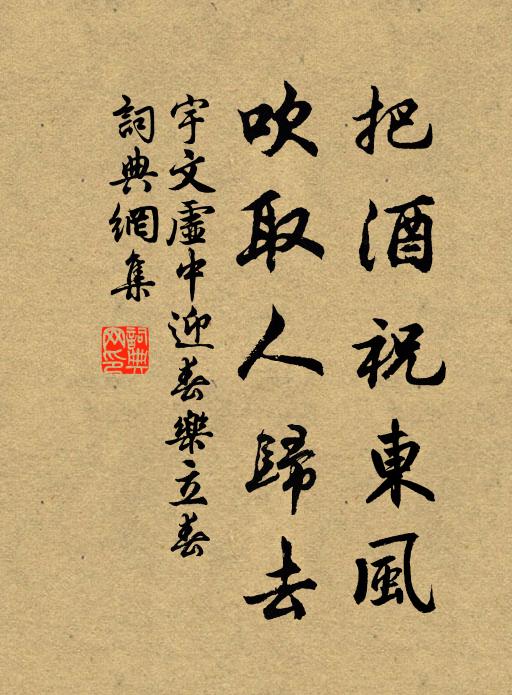 把酒祝東風
吹取人歸去
宇文虛中迎春樂立春
詞典網集
詞典网印